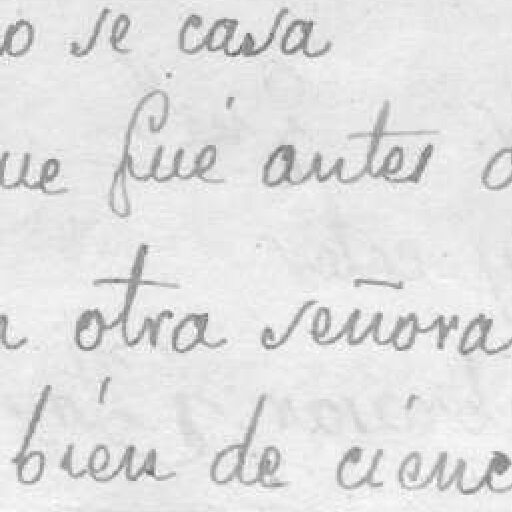 o se casa
ue fué antes
otra señora
bien de cienc